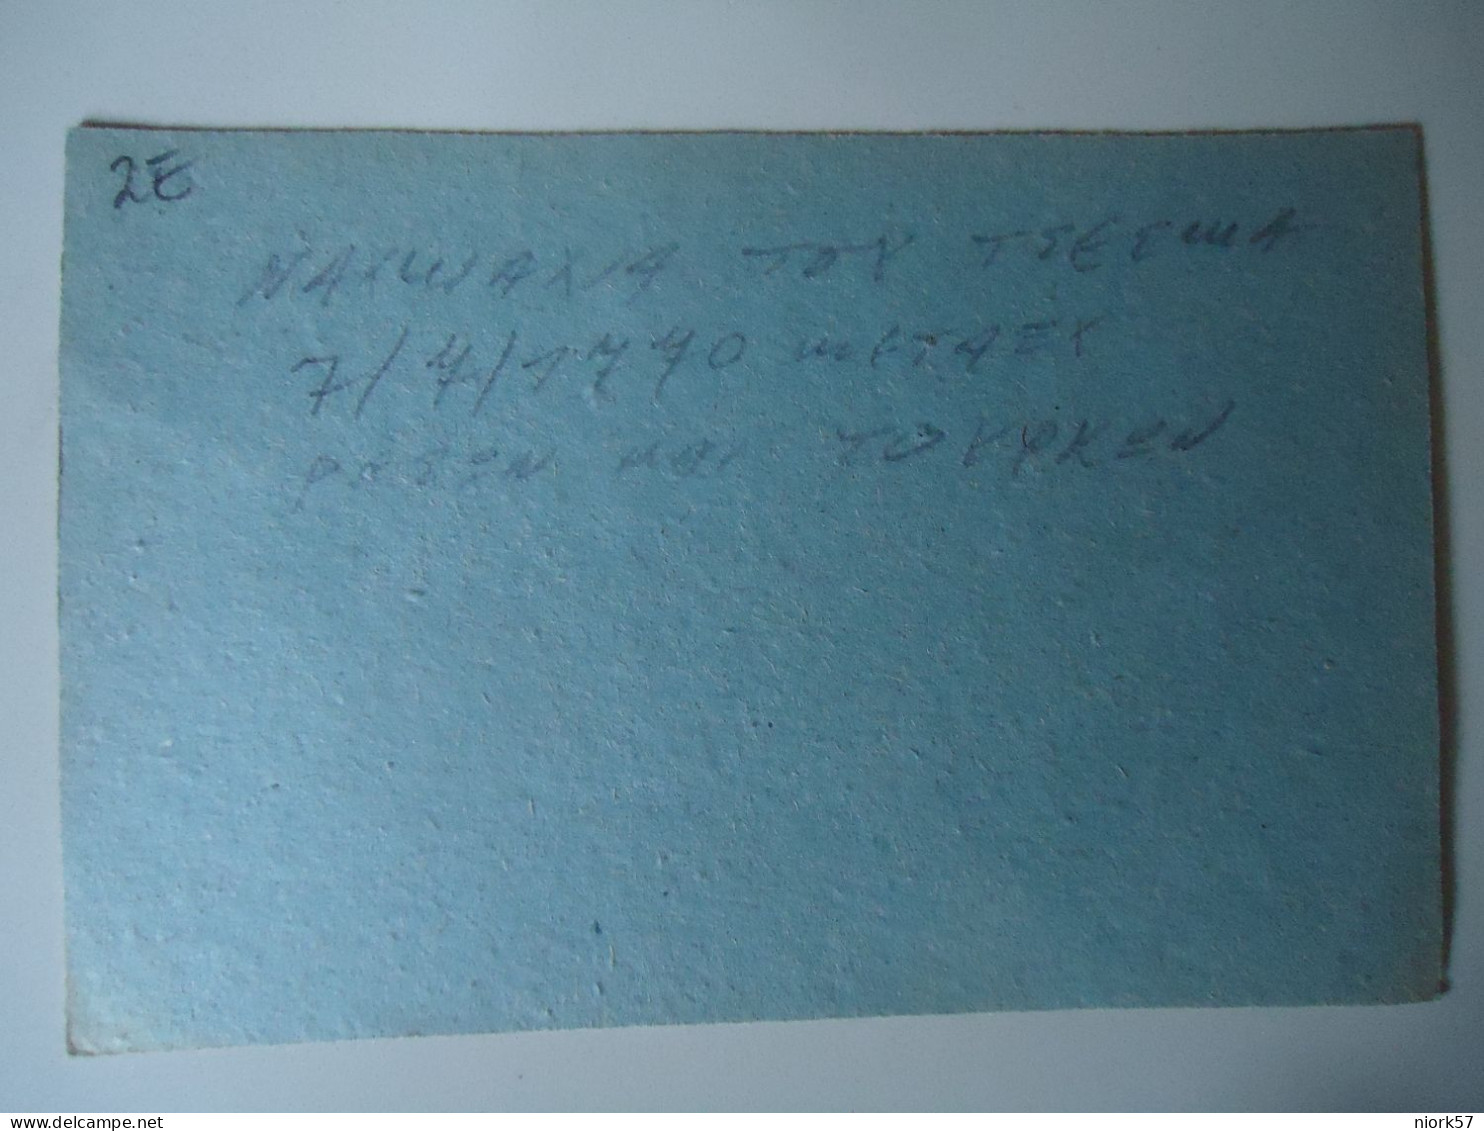 2E
ΝΑΥΜΑΧΙΑ ΤΟΥ ΤΣΕΣΜΑ
7/7/1770 ΜΕΤΑΞΥ
ΡΩΣΩΝ ΚΑΙ ΤΟΥΡΚΩΝ
niork57